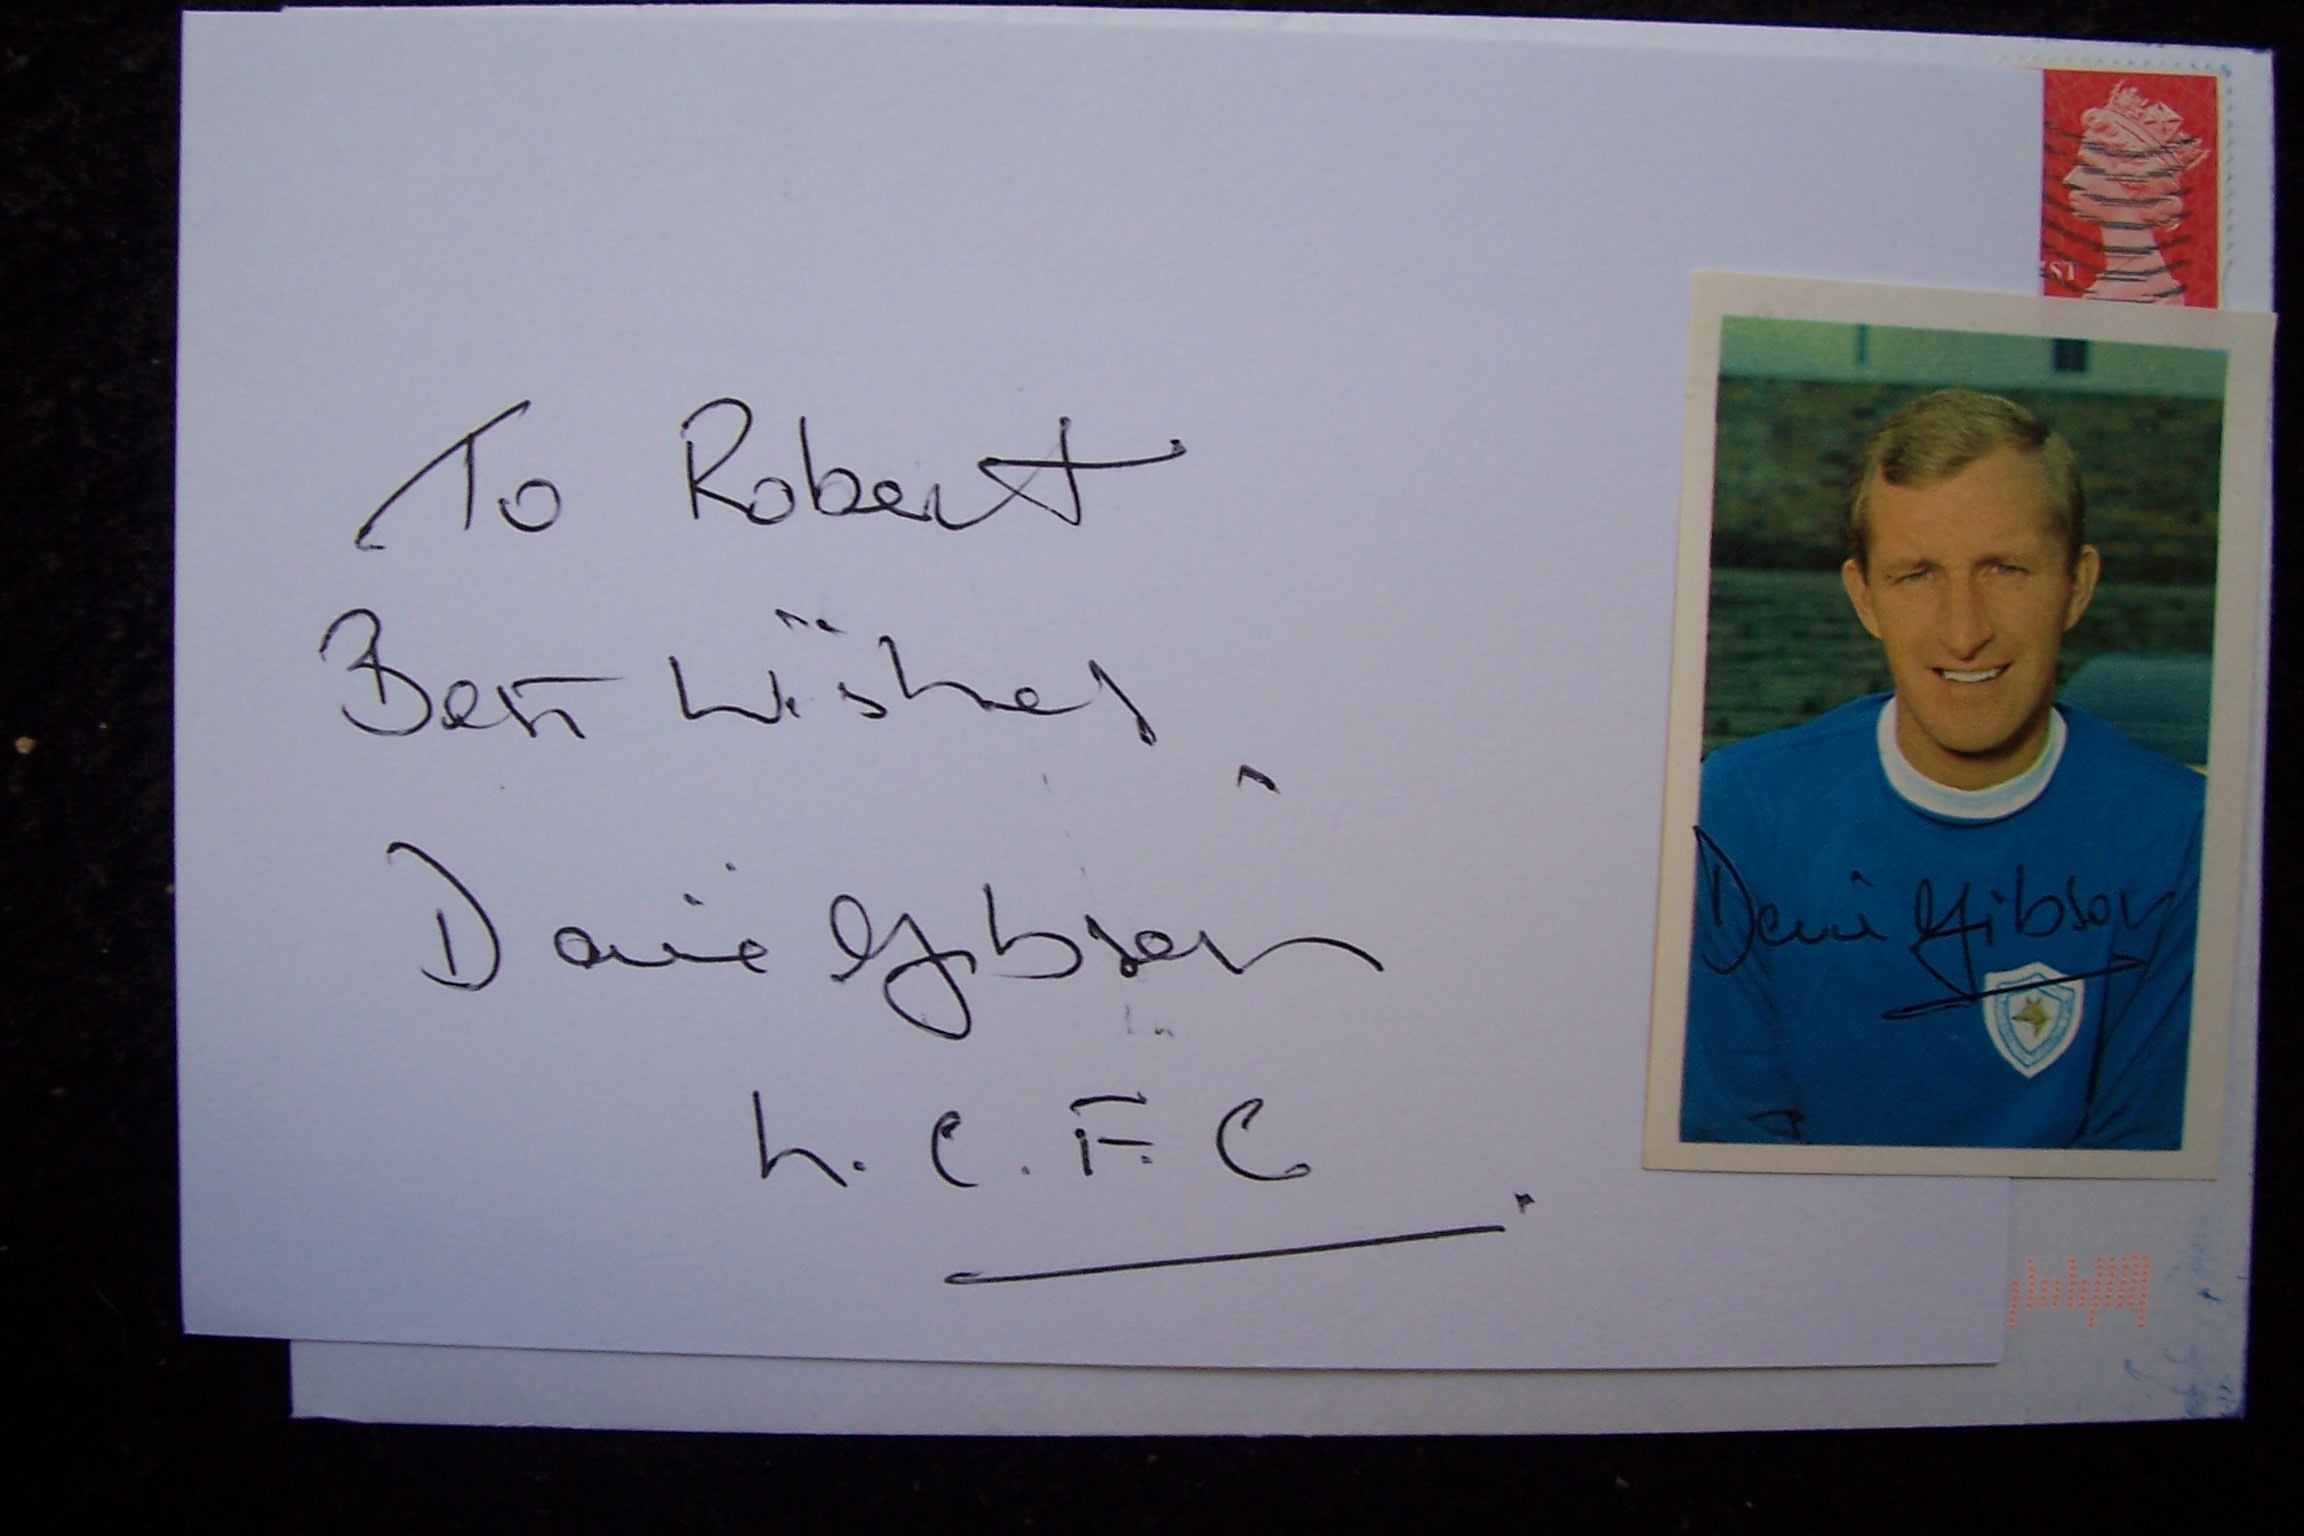 To Robert
Best Wishes
Davie Gibson
L. C. F. C
1ST
Davie Gibson